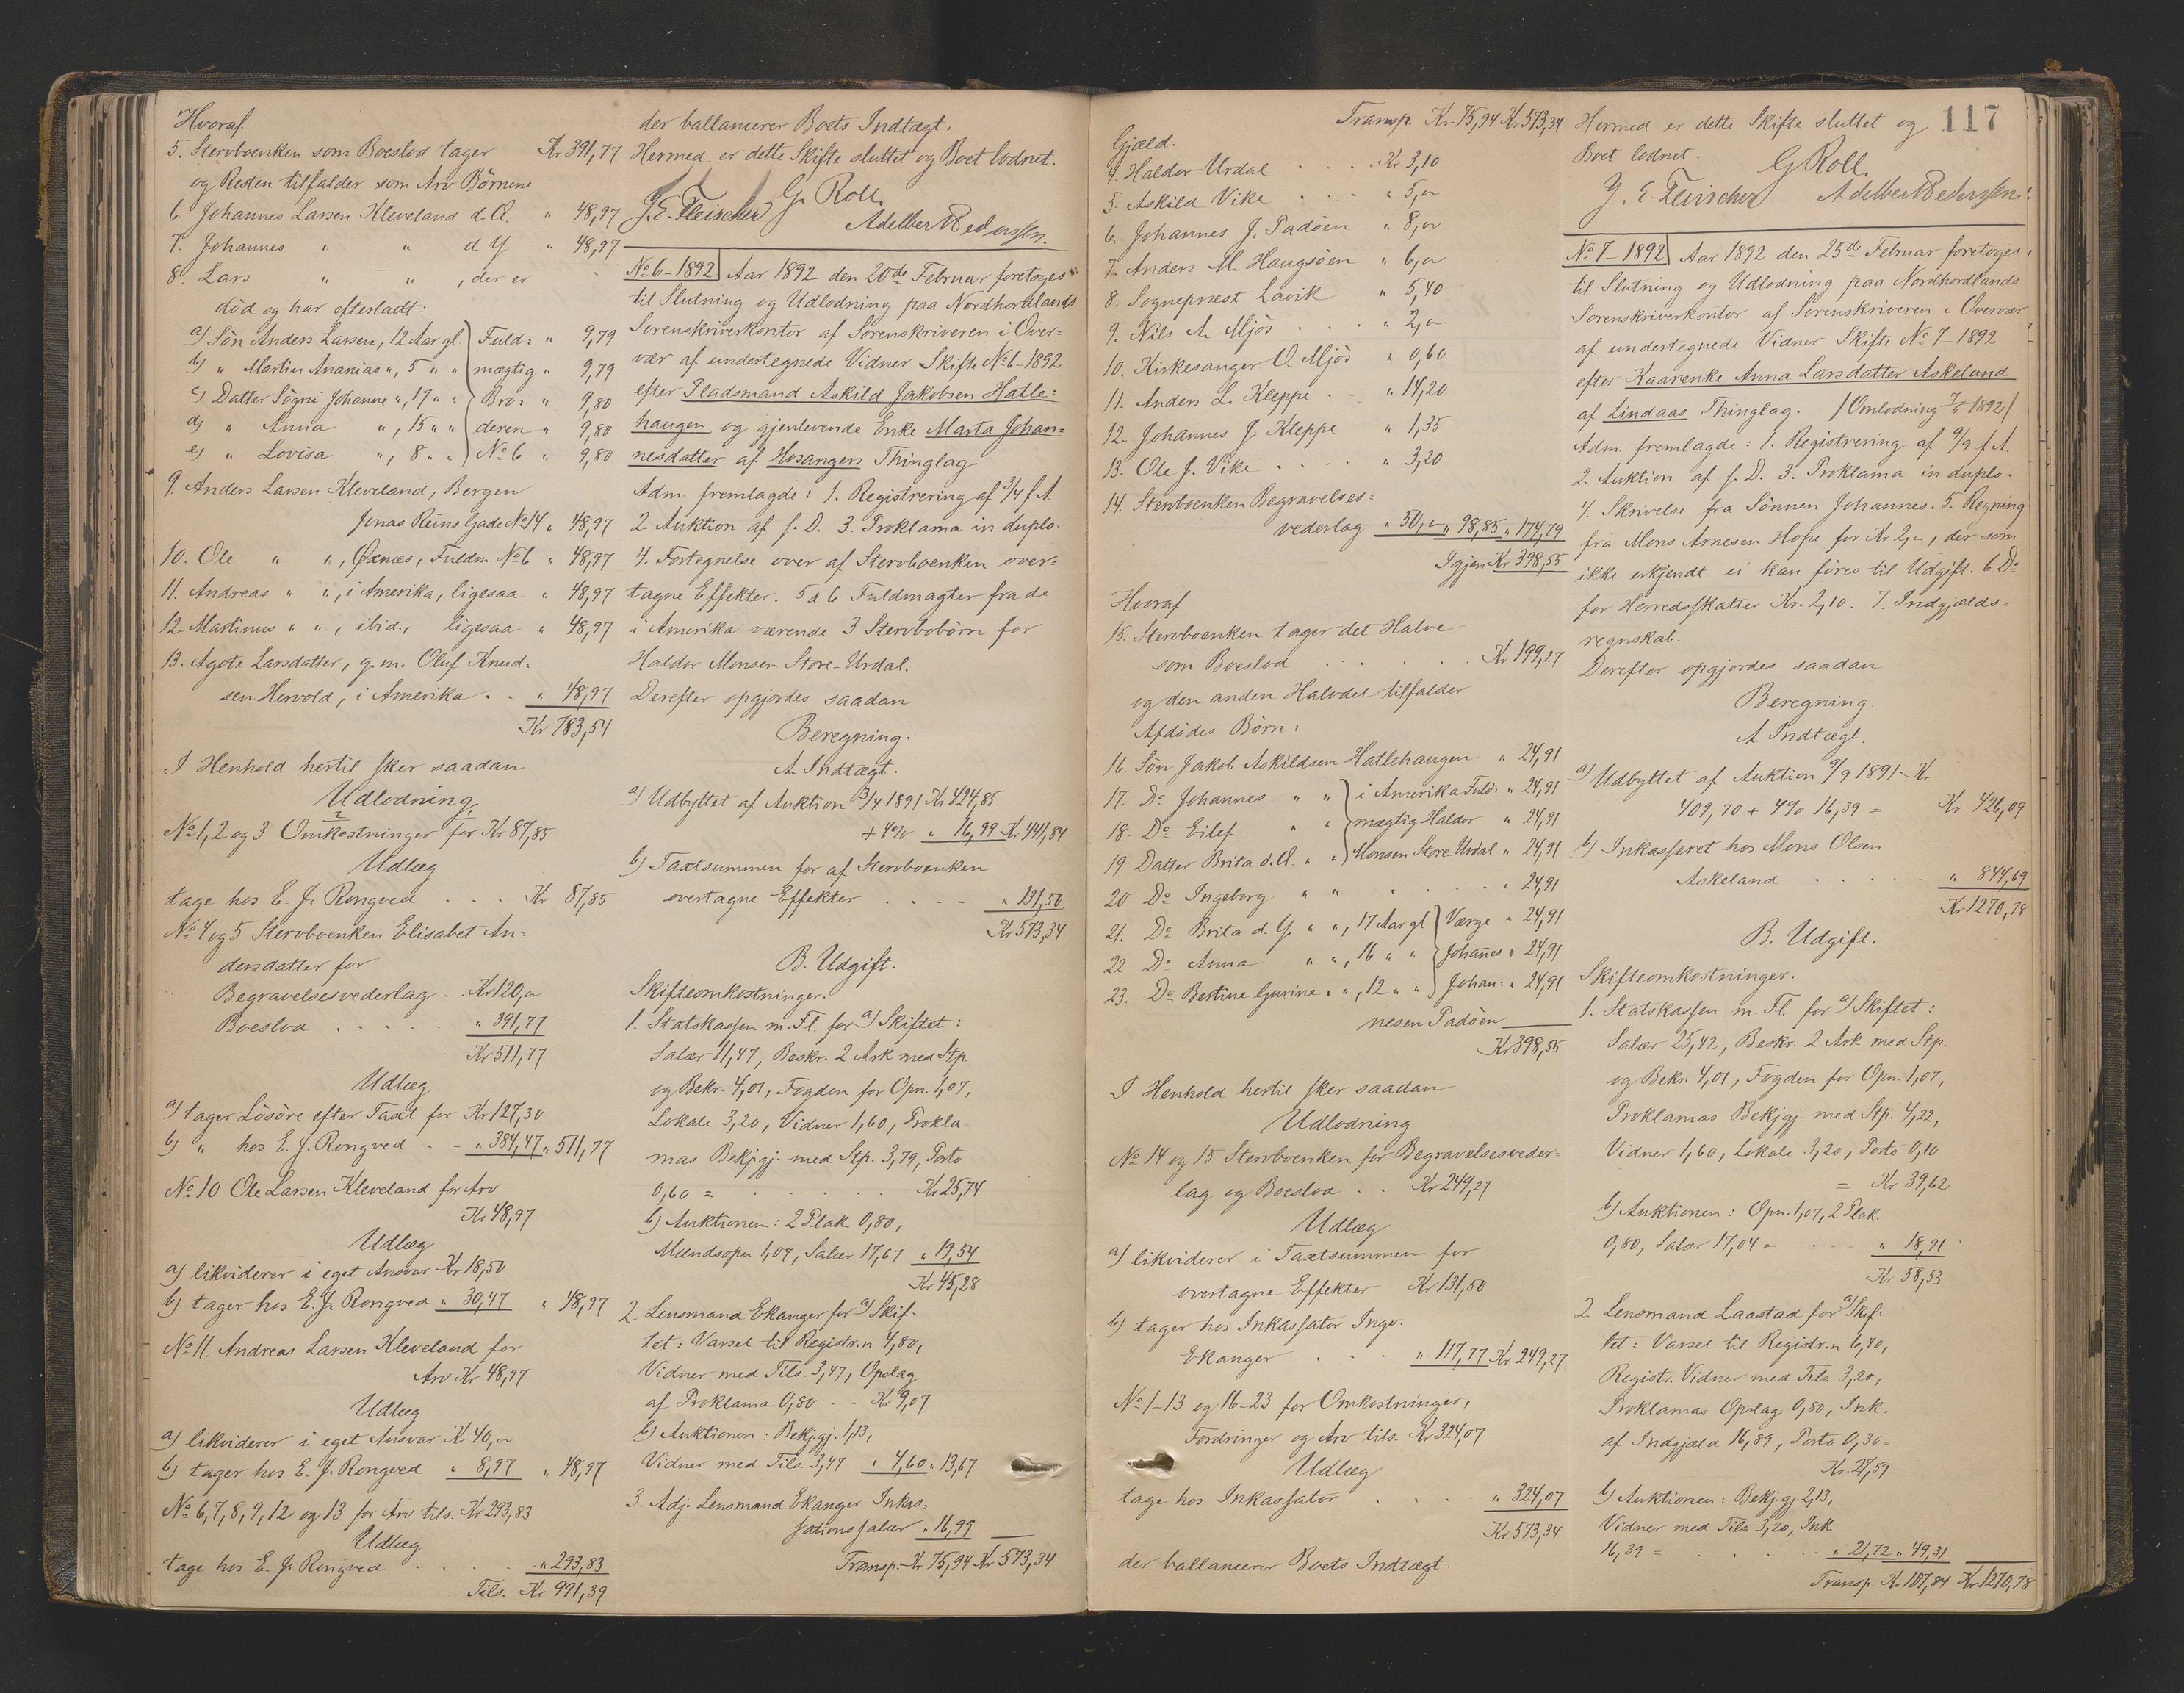 Hvoraf
5. Stervboenken som Boeslod tager Kr 391,77
og Resten tilfalder som Arv Börnene
6. Johannes Larsen Kleveland d. Æ. " 48,97
7. Johannes " " d. Y. " 48,97
8. Lars " " , der er
död og har efterladt:
a) Sön Anders Larsen, 12 Aar gl. Fuld= " 9,79
b) " Martin Ananias ", 5 " " mægtig " 9,79
c) Datter Sögni Johanne ", 17 " " Bro= " 9,80
d) " Anna ", 15 " " deren " 9,80
e) " Lovisa ", 8 " " No 6 " 9,80
9. Anders Larsen Kleveland, Bergen
Jonas Reins Gade No 14 " 48,97
10. Ole " ", Öxnæs, Fuldm. No 6 " 48,97
11. Andreas " ", i Amerika, ligesaa " 48,97
12. Martinus " ", ibid., ligesaa " 48,97
13. Agote Larsdatter, g. m. Oluf Knud=
sen Hervold, i Amerika . . " 48,97
Kr 783,54
I Henhold hertil sker saadan
Udlodning
No 1, 2 og 3 Omkostninger for Kr 87,85
Udlæg
tage hos E. J. Rongved . . . Kr 87,85
No 4 og 5 Stervboenken Elisabet An=
dersdatter for
Begravelsesvederlag . . Kr 120,"
Boeslod . . . . . " 391,77
Kr 511,77
Udlæg
a) tager Lösöre efter Taxt for Kr 127,30
b) " hos E. J. Rongved . . " 384,47 " 511,77
No 10 Ole Larsen Kleveland for Arv
Kr 48,97
Udlæg
a) likviderer i eget Ansvar Kr 18,50
b) tager hos E. J. Rongved " 30,47 " 48,97
No 11. Andreas Larsen Kleveland for
Arv Kr 48,97
Udlæg
a) likviderer i eget Ansvar Kr 40,"
b) tager hos E. J. Rongved " 8,97 " 48,97
No 6, 7, 8, 9, 12 og 13 for Arv tils. Kr 293,83
Udlæg
tage hos E. J. Rongved . . . . " 293,83
Tils. Kr 991,39
der ballancerer Boets Indtægt.
Hermed er dette Skifte sluttet og Boet lodnet.
G. Roll.
J. E. Fleischer Adelbert Pedersen.
No 6 - 1892 Aar 1892 den 20de Februar foretoges
til Slutning og Udlodning paa Nordhordlands
Sorenskriverkontor af Sorenskriveren i Over=
vær af undertegnede Vidner Skifte No 6 - 1892
efter Pladsmand Askild Jakobsen Hatle=
haugen og gjenlevende Enke Marta Johan=
nesdatter af Hosangers Thinglag
Adm. fremlagde: 1. Registrering af 3/4 f. A.
2. Auktion af s. D. 3. Proklama in duplo.
4. Fortegnelse over af Stervboenken over=
tagne Effekter. 5 à 6 Fuldmagter fra de
i Amerika værende 3 Stervbobörn for
Haldor Monsen Store-Urdal.
Derefter opgjordes saadan
Beregning.
A. Indtægt.
a) Udbyttet af Auktion 3/4 1891 Kr 424,85
+ 4% " 16,99 Kr 441,84
b) Taxtsummen for af Stervboenken
overtagne Effekter . . . . " 131,50
Kr 573,34
B. Udgift.
Skifteomkostninger.
1. Statskassen m. Fl. for a) Skiftet:
Salær 11,47, Beskr. 2 Ark med Stp.
og Bekr. 4,01, Fogden for Opn. 1,07,
Lokale 3,20, Vidner 1,60, Prokla=
mas Bekjgj. med Stp. 3,79, Porto
0,60 = . . . . . Kr 25,74
b) Auktionen: 2 Plak. 0,80,
Mændsopn 1,07, Salær 17,67 " 19,54
Kr 45,28
2. Lensmand Ekanger for a) Skif=
tet: Varsel til Registr.n 4,80,
Vidner med Tils. 3,47, Opslag
af Proklama 0,80 . . Kr 9,07
b) Auktionen: Bekjgj. 1,13,
Vidner med Tils. 3,47 " 4,60 " 13,67
3. Adj. Lensmand Ekanger Inkas=
sationssalær " 16,99
Transp. Kr 75,94 Kr 573,34
Transp. Kr 75,94 Kr 573,34
Gjæld.
4. Haldor Urdal . . . . Kr 3,10
5. Askild Vike . . . " 5,"
6. Johannes J. Padöen " 8,"
7. Anders M. Haugsöen " 6,"
8. Sognepræst Lavik " 5,40
9. Nils A. Mjös . . . " 2,"
10. Kirkesanger O. Mjös " 0,60
11. Anders L. Kleppe . . " 14,20
12. Johannes J. Kleppe " 1,35
13. Ole J. Vike . . . . " 3,20
14. Stervboenken Begravelses=
vederlag " 50," " 98,85 " 174,79
Igjen Kr 398,55
Hvoraf
15. Stervboenken tager det Halve
som Boeslod . . . . . Kr 199,27
og den anden Halvdel tilfalder
Afdödes Börn:
16. Sön Jakob Askildsen Hatlehaugen " 24,91
17. Do Johannes " " i Amerika Fuld= " 24,91
18. Do Eilef " " mægtig Haldor " 24,91
19 Datter Brita d. Æ. " " Monsen Store Urdal " 24,91
20 Do Ingeborg " " . . . " 24,91
21. Do Brita d. Y. " ", 17 Aar gl Værge " 24,91
22 Do Anna " ", 16 " " Johannes " 24,91
23. Do Bertine Gurine " ", 12 " " Johan= " 24,91
nesen Padöen
Kr 398,55
I Henhold hertil sker saadan
Udlodning
No 14 og 15 Stervboenken for Begravelsesveder=
lag og Boeslod . . Kr 249,27
Udlæg
a) likviderer i Taxtsummen for
overtagne Effekter Kr 131,50
b) tager hos Inkassator Ingv.
Ekanger . . . " 117,77 Kr 249,27
No 1-13 og 16-23 for Omkostninger,
Fordringer og Arv tils. Kr 324,07
Udlæg
tage hos Inkassator . . . . " 324,07
Kr 573,34
der ballancerer Boets Indtægt.
117
Hermed er dette Skifte sluttet og
Boet lodnet.
G Roll.
J. E. Fleischer Adelbert Pedersen.
No 7 - 1892 Aar 1892 den 25de Februar foretoges
til Slutning og Udlodning paa Nordhordlands
Sorenskriverkontor af Sorenskriveren i Overvær
af undertegnede Vidner Skifte No 7 - 1892
efter Kaarenke Anna Larsdatter Askeland
af Lindaas Thinglag. /Omlodning 7/5 1892/.
Adm. fremlagde: 1. Registrering af 9/9 f. A.
2. Auktion af s. D. 3. Proklama in duplo.
4. Skrivelse fra Sönnen Johannes. 5. Regning
fra Mons Arnesen Hope for Kr 2,", der som
ikke erkjendt ei kan föres til Udgift. 6. Do
for Herredsskatter Kr. 2,10. 7. Indgjælds=
regnskab.
Derefter opgjordes saadan
Beregning.
A. Indtægt.
a) Udbyttet af Auktion 9/9 1891 Kr
409,70 + 4% 16,39 = Kr 426,09
b) Inkasseret hos Mons Olsen
Askeland . . . . . " 844,69
Kr 1270,78
B. Udgift.
Skifteomkostninger.
1. Statskassen m. Fl. for a) Skiftet:
Salær 25,42, Beskr. 2 Ark med Stp.
og Bekr. 4,01, Fogden for Opn. 1,07,
Proklamas Bekjgj. med Stp. 4,22,
Vidner 1,60, Lokale 3,20, Porto 0,10
= Kr 39,62
b) Auktionen: Opn. 1,07, 2 Plak.
0,80, Salær 17,04 = . . " 18,91
Kr 58,53
2. Lensmand Laastad for a) Skif=
tet: Varsel til Registr.n 6,40,
Registr. Vidner med Tils. 3,20,
Proklamas Opslag 0,80, Ink.
af Indgjæld 16,89, Porto 0,30 =
Kr. 27,59
b) Auktionen: Bekjgj. 2,13,
Vidner med Tils. 3,20, Ink.
16,39 = . . . . " 21,72 " 49,31
Transp. Kr 107,84 Kr 1270,78